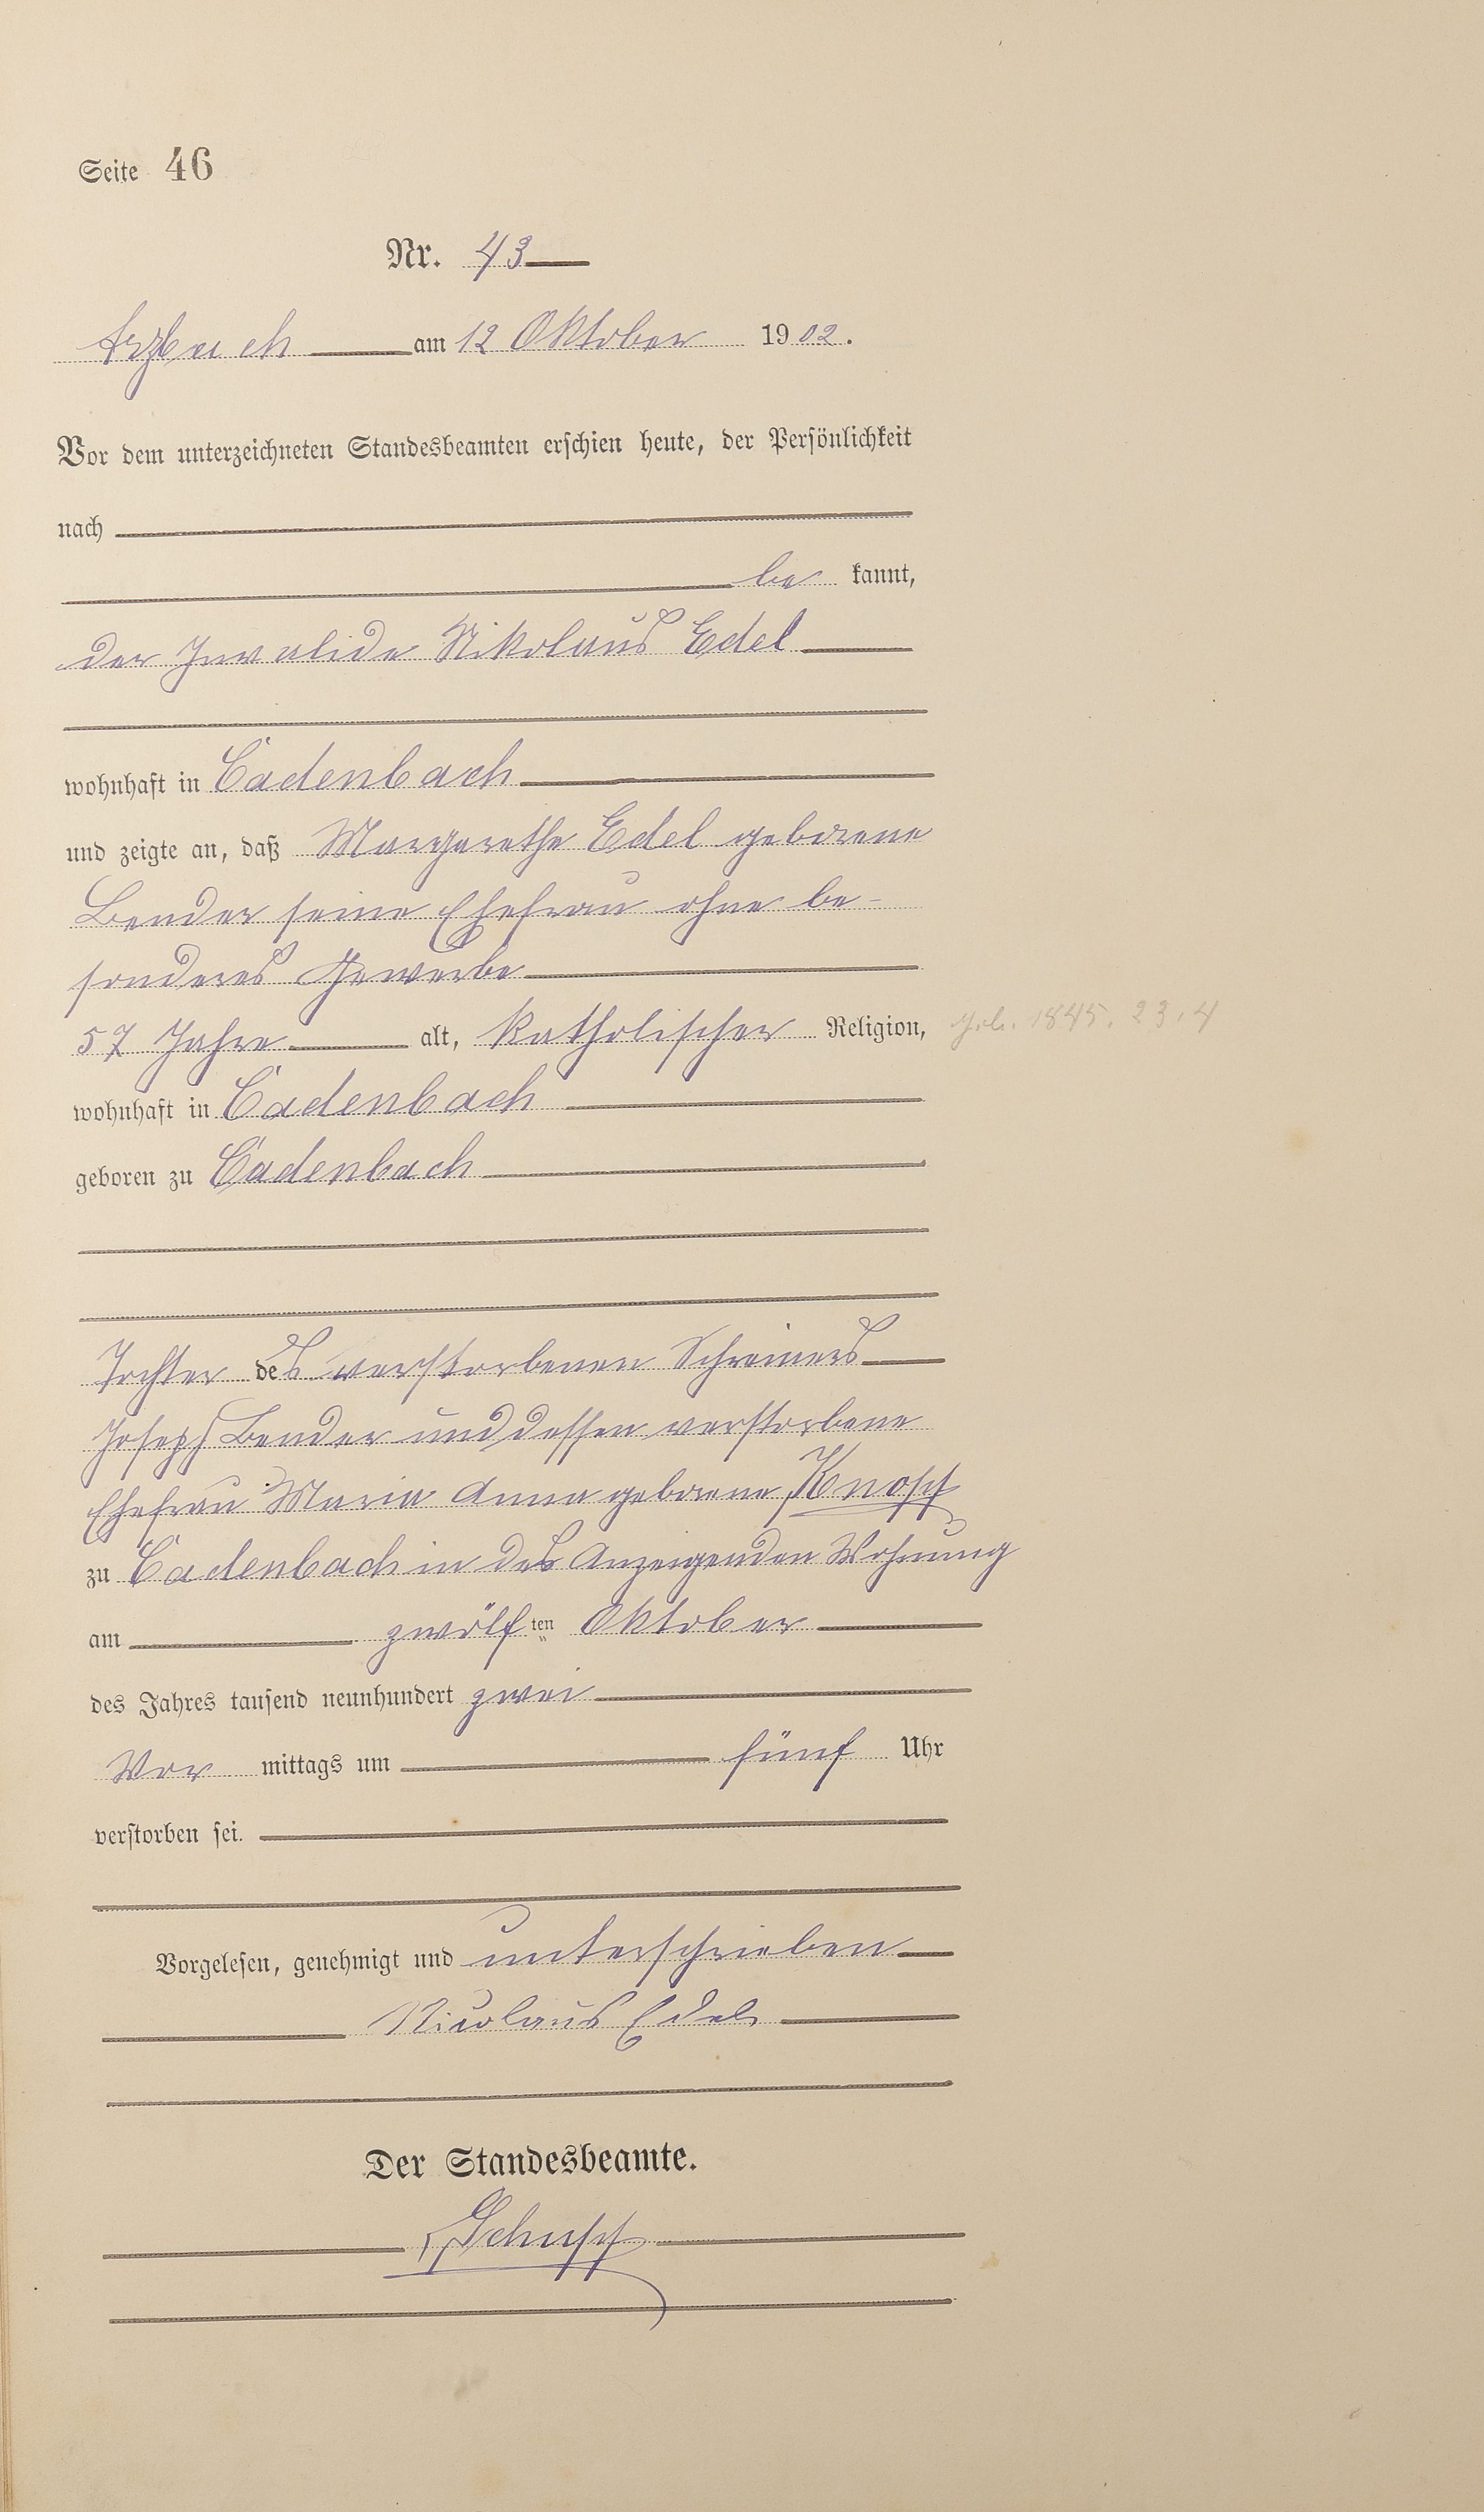 Seite 46
Nr. 43
Arzbach am 12 Oktober 1902.
Vor dem unterzeichneten Standesbeamten erschien heute, der Persönlichkeit
nach
be kannt,
der Invalide Nikolaus Edel
wohnhaft in Cadenbach
und zeigte an, daß Margarethe Edel geborene
Bender seine Ehefrau ohne be-
sonderes Gewerbe
57 Jahre alt, katholischer Religion, geb. 1845. 23.4
wohnhaft in Cadenbach
geboren zu Cadenbach
Tochter des verstorbenen Schreiners
Joseph Bender und dessen verstorbene
Ehefrau Maria Anna geborene Knopp
zu Cadenbach in des Anzeigenden Wohnung
am zwölften Oktober
des Jahres tausend neunhundert zwei
Vor mittags um fünf Uhr
verstorben sei.
Vorgelesen, genehmigt und unterschrieben
Nicolaus Edel
Der Standesbeamte.
Schupp